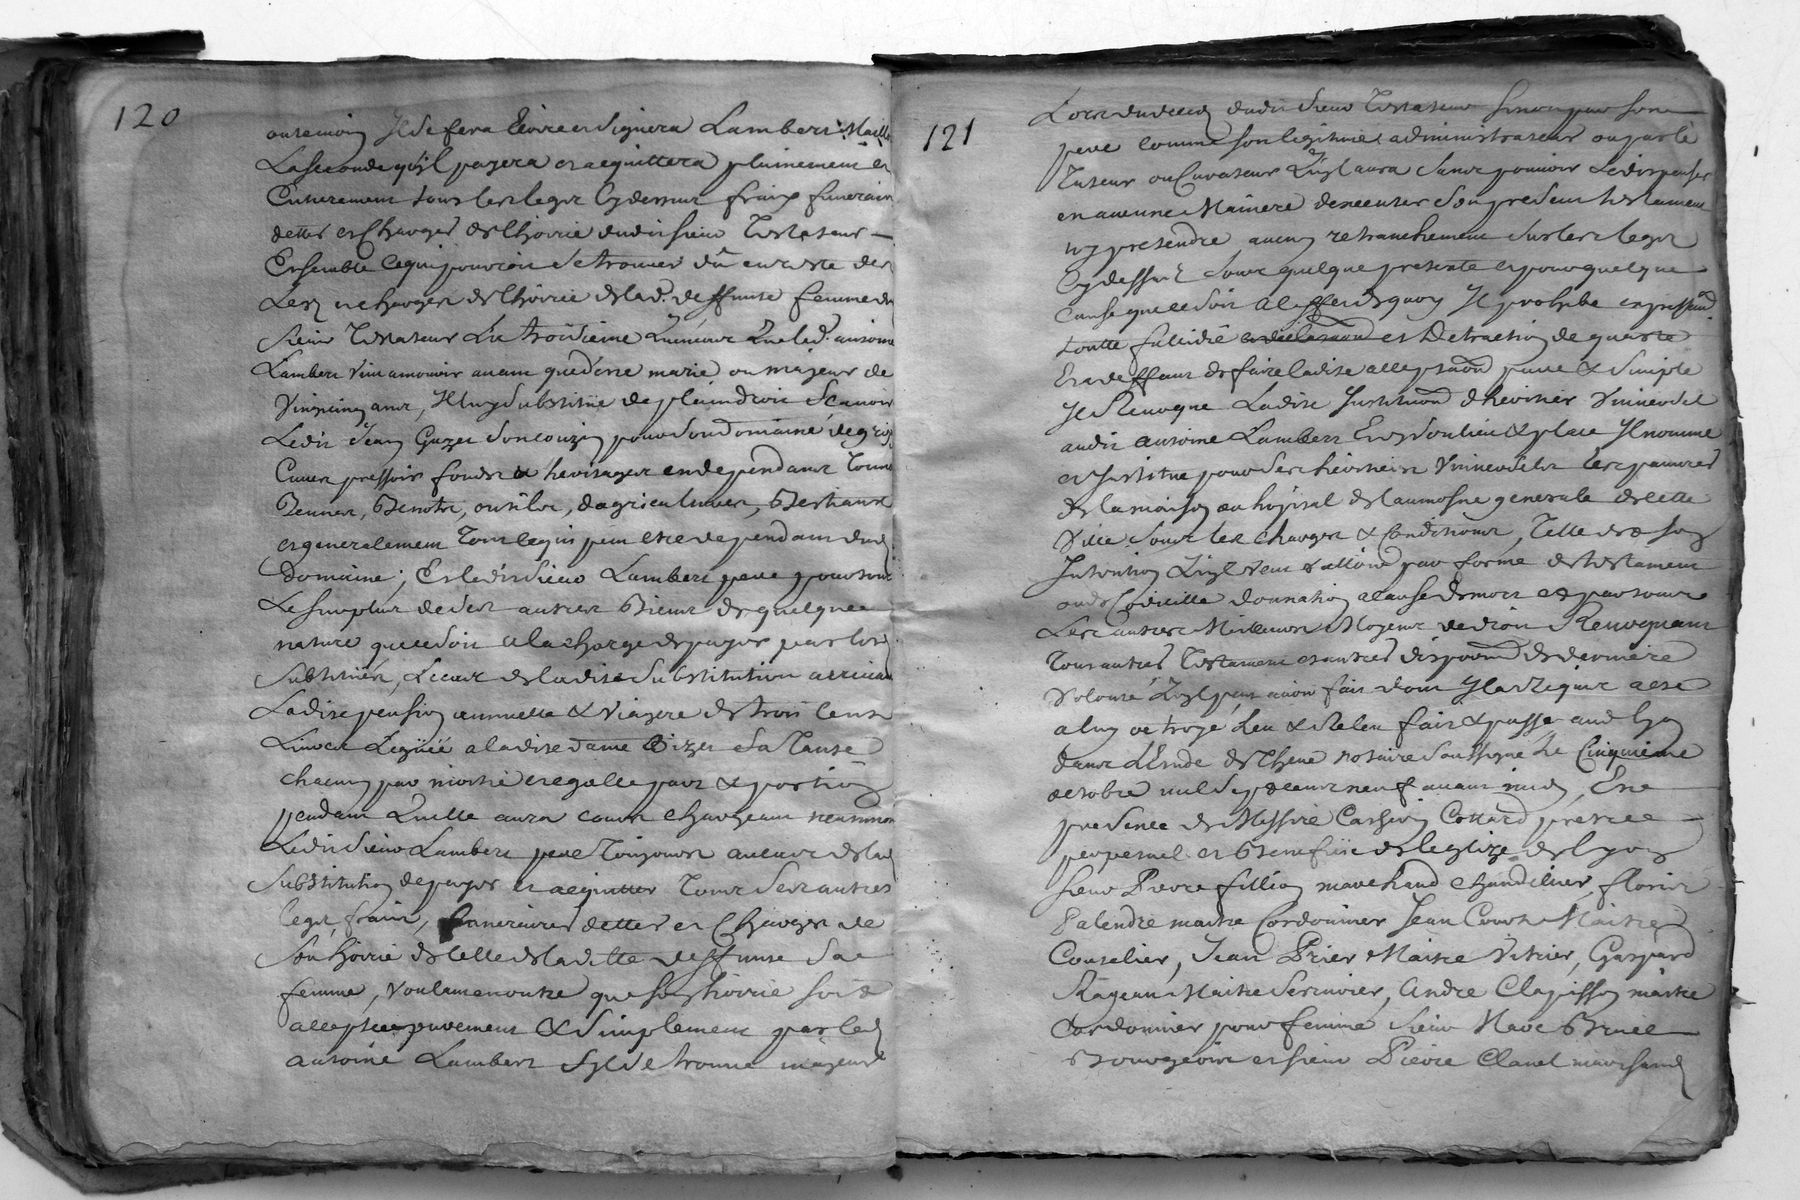 120
autremoin Il se fera Ecrire et Signera Lambert Maille
La seconde qu'il payera et acquittera plainement et
Entierement tous les legs Cy dessus fraix funerain
dettes et Charges de l'hoirie dudit sieur Testateur
Ensemble ce qui pourroit se trouver dû en reste des
Legs et charges de l'hoirie de lad. deffunte femme du
Sieur Testateur La troisieme qu'encour que led. antoine
Lambert vint a mourir avant que d'etre marié ou majeur de
Vingt cinq ans, Il luy Substitue de plein droit Scavoir
Ledit Jean Guzet Son couzin pour Son domaine de
Cuves pressoir fonds et heritages en dependant Tonne
Bennes, Benots, outils, d'agriculture, Bestiaux
et generalement Tout ce qui peut etre dependant dud
Domaine; Et ledit Sieur Lambert pere pour tout
Le Surplus de Ses autres Biens de quelque
nature que ce Soit a la charge de payer par les
Substitués, Le cas de ladite Substitution arrivant
Ladite pension annuelle & viagere de trois Cents
Livres Leguée a ladite dame Sa Tante
chacun par moitié et egalle part & portion
pendant quelle aura cours chargeant neanmoin
Ledit Sieur Lambert pere Toujours au cas de lad
Substitution de payer et acquitter Tous Ses autres
legs, frais, funeraires dettes et Charges de
Son hoirie de celle de laditte deffunte Sa
femme, voulant en outre que son hoirie soit
acceptée purement & Simplement par led
antoine Lambert S'il Se trouve majeur
121
Lors du deced dudit Sieur Testateur Sinon par Son
pere comme Son legitime administrateur ou par le
Tuteur ou Curateur qu'il aura Sans pouvoir Se dispenser
en aucune Maniere d'executer Son present testament
ny pretendre aucun retranchement Sur les legs
Cy dessus Sous quelque pretexte et pour quelque
cause que ce Soit a l'effet de quoy Il prohibe expressem.
toutte falcidie et Detraction de quarte
Et a deffaut de faire ladite acceptaõn pure & Simple
Il Revoque Ladite Institution d'heritier Universel
audit antoine Lambert Et en Son lieu & place Il nomme
et Institue pour Ses heritiers Universels les pauvres
de la maison ou hopital de l'aumosne generale de cette
Ville Sous les Charges & Conditions, Telle est Son
Intention qu'il veut valloir par forme de testament
ou de Codicille donnation a cause de mort et par toutes
Les autres Meilleurs Moyens de droit Revoquant
Tous autres Testament et autres dispositions de derniere
Volonté qu'il peut avoir fait dont Il a Requis acte
a luy octroyé leu & Releu fait & passé aud Lyon
dans L'Etude de Thene notaire Soussigné Le Cinquieme
octobre mil Sept cent neuf avant midy, En
presence de Messire Cottard pretre
perpetuel et Beneficié de l'eglize de Lyon
sieur Pierre fillion marchand chandelier, florin
Palendre maitre Cordonnier Jean Court Maitre
Coutelier, Jean Prier Maitre Vitrier, Gaspard
Rageau Maitre Serrurier, André Clapisson maitre
Cordonnier pour femme Sieur Marc Bruel
Bourgeois et sieur Pierre Clavel marchand